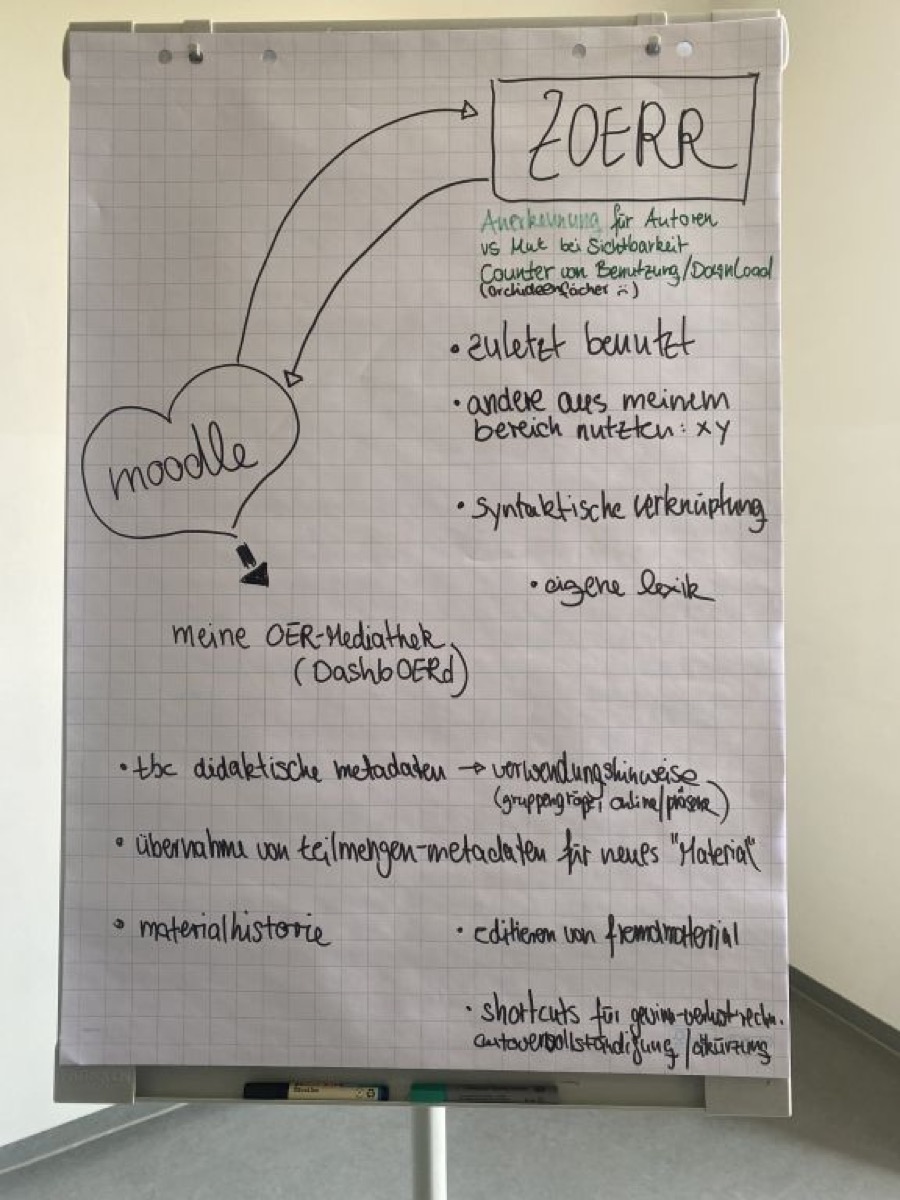 ZOERR
Anerkennung für Autoren
vs Mut bei Sichtbarkeit
Counter von Benutzung/Download
(orchideenfächer :)
• zuletzt benutzt
• andere aus meinem
bereich nutzten: xy
moodle
• syntaktische verknüpfung
• eigene lexik
meine OER-Mediathek
(DashbOERd)
• tbc didaktische metadaten → verwendungshinweise
(gruppengröße, online/präsenz)
• übernahme von teilmengen-metadaten für neues "Material"
• materialhistorie
• editieren von fremdmaterial
• shortcuts für
autovervollständigung /abkürzung